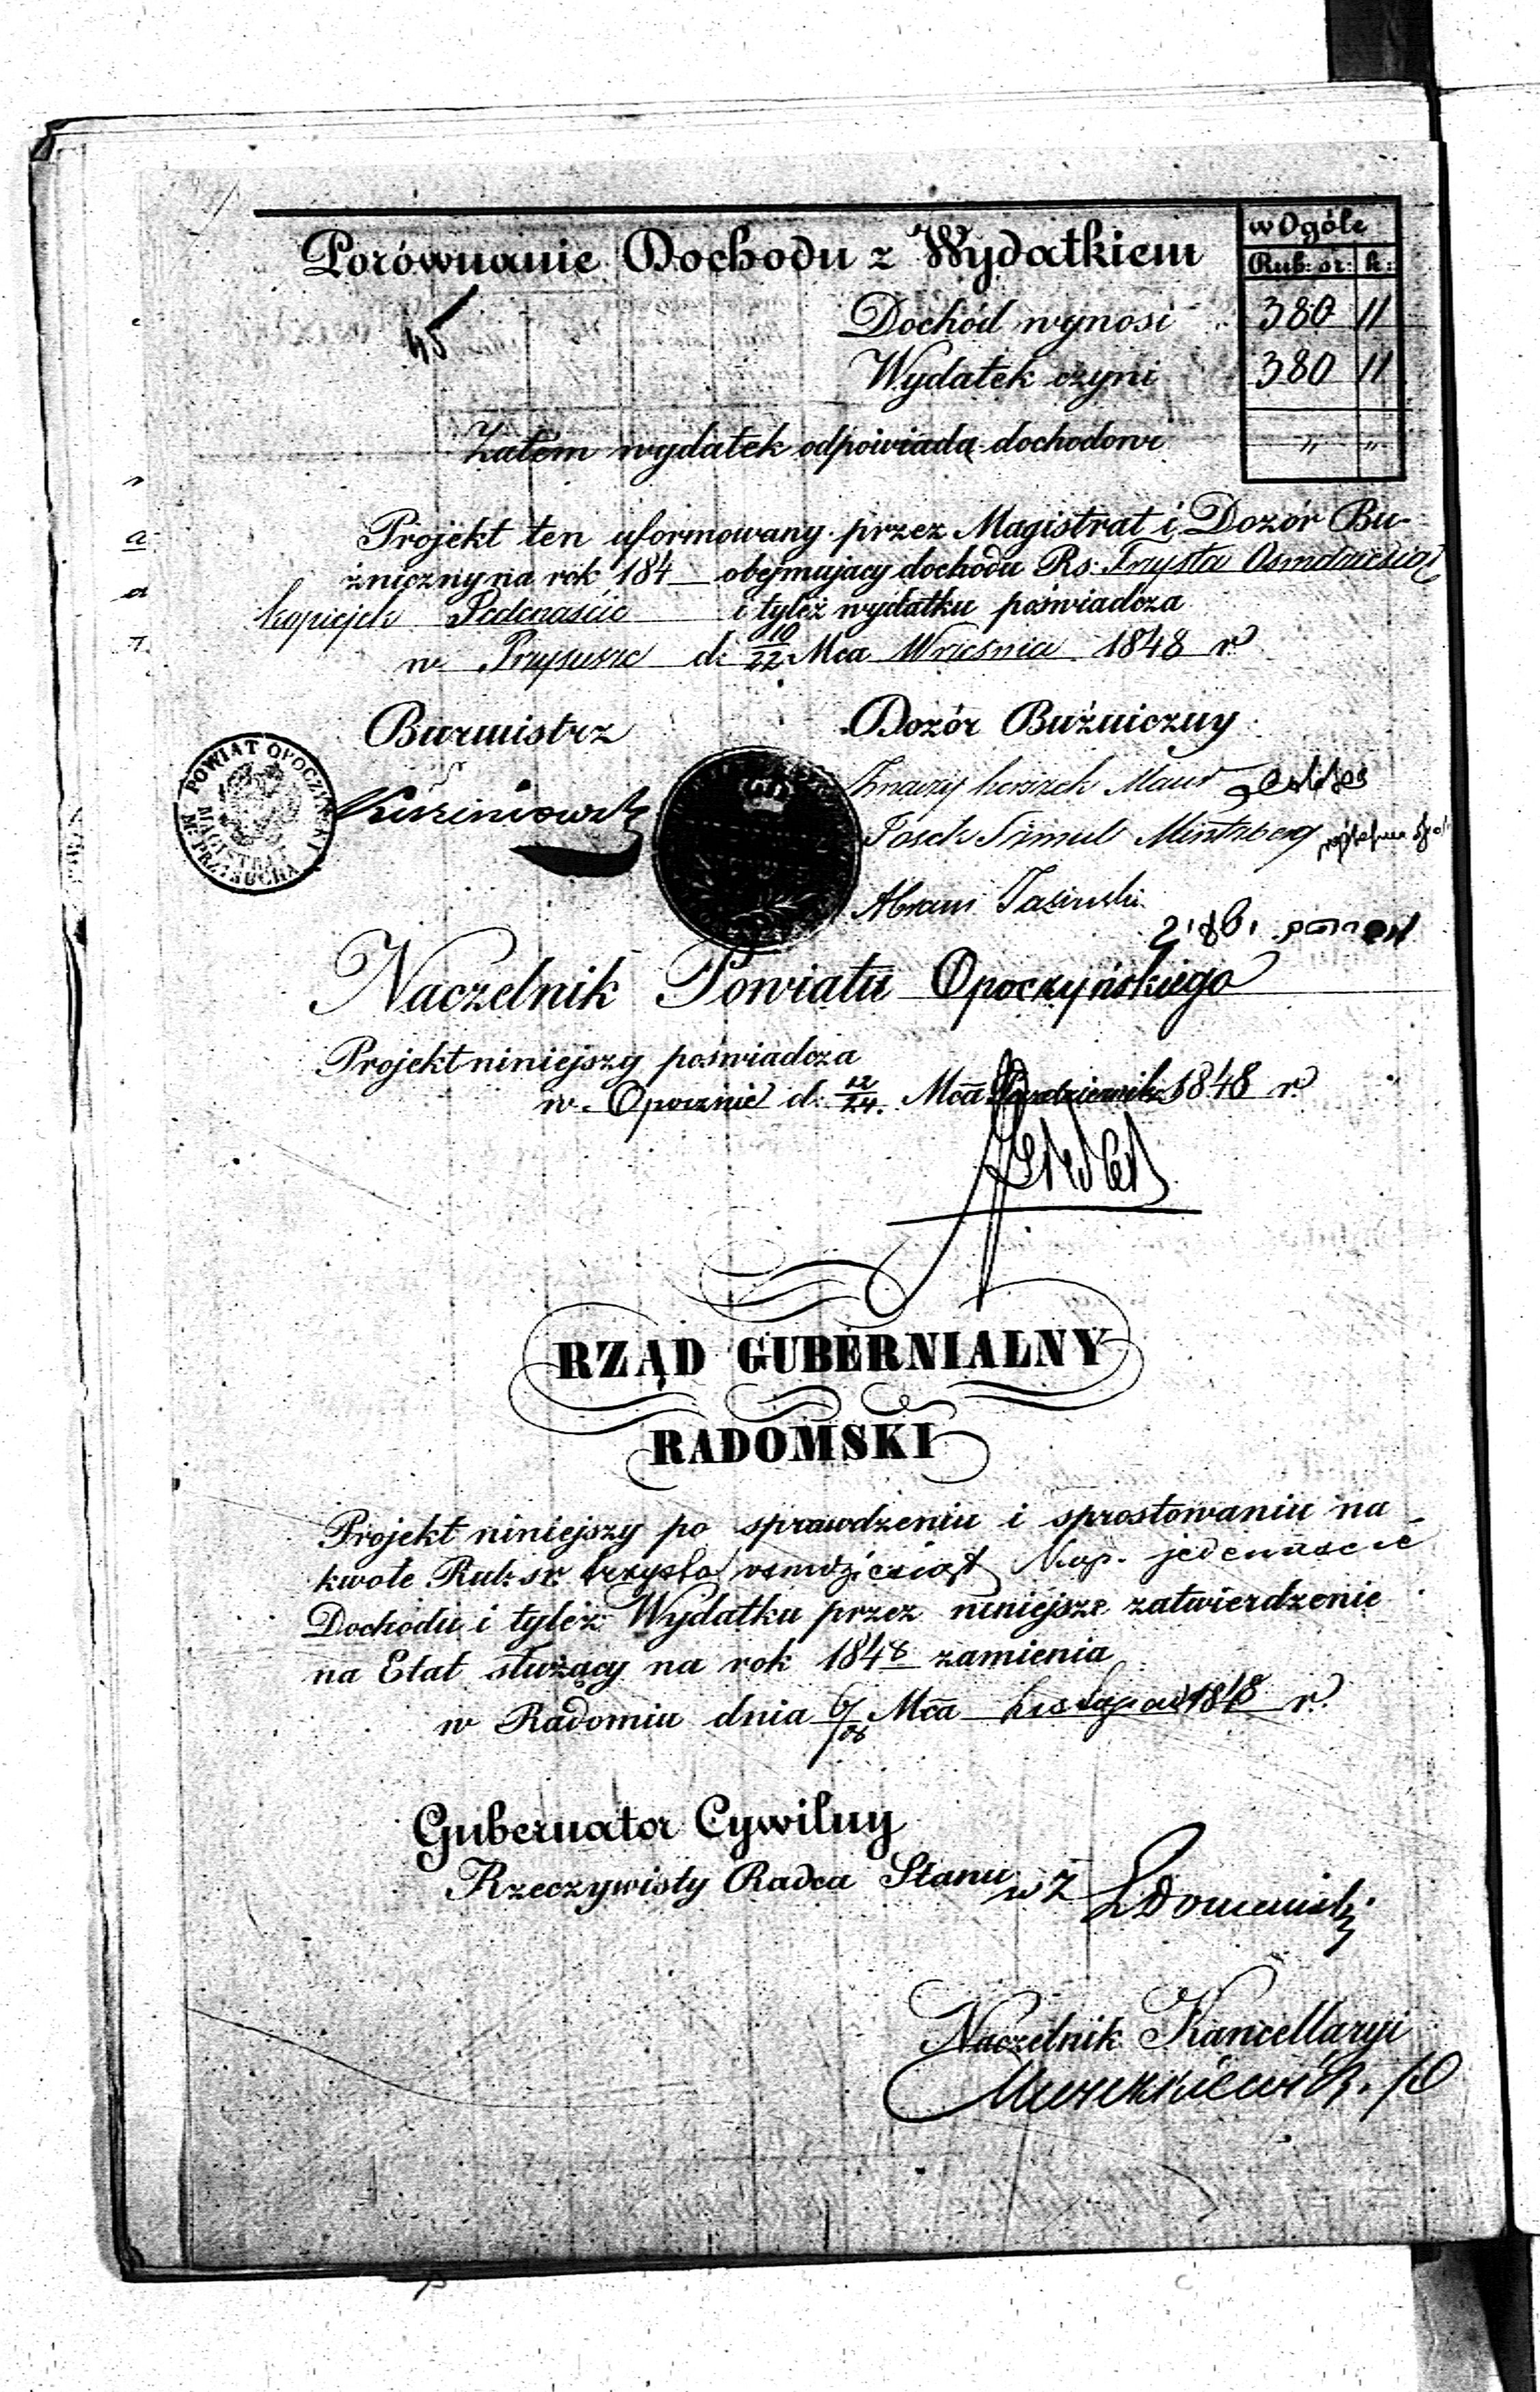 w Ogóle
Porównanie Dochodu z Wydatkiem
Rub: sr: k:
45
Dochód wynosi 380 11
Wydatek czyni 380 11
Zatém wydatek odpowiada dochodowi " "
Projekt ten uformowany przez Magistrat i Dozór Bu-
żniczny na rok 184 obejmujacy dochodu Rs: Trzysta Osmdziesiąt
kopiejek Jedenaście i tyleż wydatku poświadcza
w Przysusze d: 10/22 Mca Września 1848 r.
Burmistrz Dozór Bużniczny
POWIAT OPOCZYŃSKI
MAGISTRAT
M. PRZYSUCHA
Josek Szmul Mintzberg
Abram
Naczelnik Powiatu Opoczyńskiego
Projekt niniejszy poświadcza
w Opocznie d: 12/24. Mca Października 1848 r.
RZĄD GUBERNIALNY
RADOMSKI
Projekt niniejszy po sprawdzeniu i sprostowaniu na
kwotę Rub: sr. trzysta osmdziesiąt Kop. jedenaście
Dochodu i tyleż Wydatku przez niniejsze zatwierdzenie
na Etat służący na rok 1848 zamienia
w Radomiu dnia Mca Listopada 1848 r.
Gubernator Cywilny
Rzeczywisty Radca Stanu w Z
Naczelnik Kancellaryi